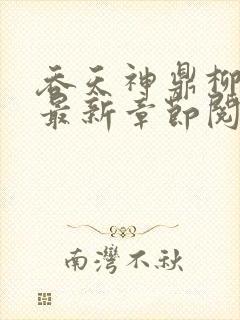 吞天神鼎柳
最新章節閱
南灣不秋